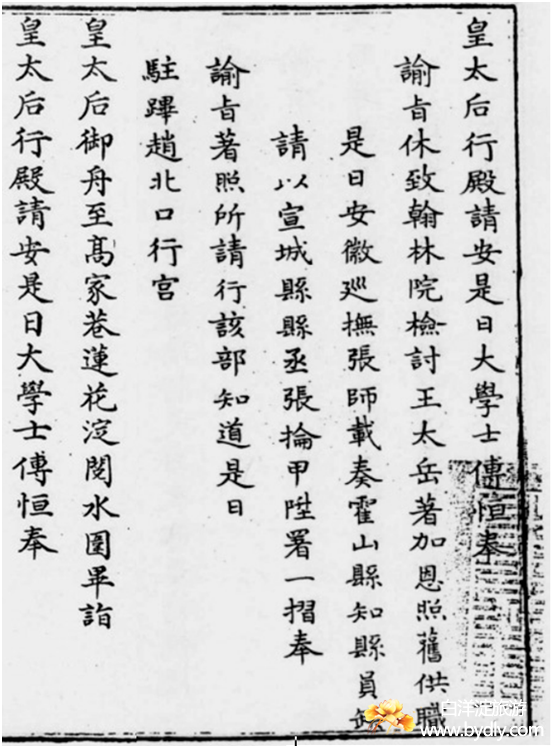 皇太后行殿請安是日大學士傅恒奉
諭旨休致翰林院檢討王太岳著加恩照舊供職
是日安徽廵撫張師載奏霍山縣知縣員缺
請以宣城縣縣丞張掄甲陞署一摺奉
諭旨著照所請行該部知道是日
駐蹕趙北口行宮
皇太后御舟至髙家巷蓮花淀閱水圍畢詣
皇太后行殿請安是日大學士傅恒奉
白洋淀旅游
www.bydly.com